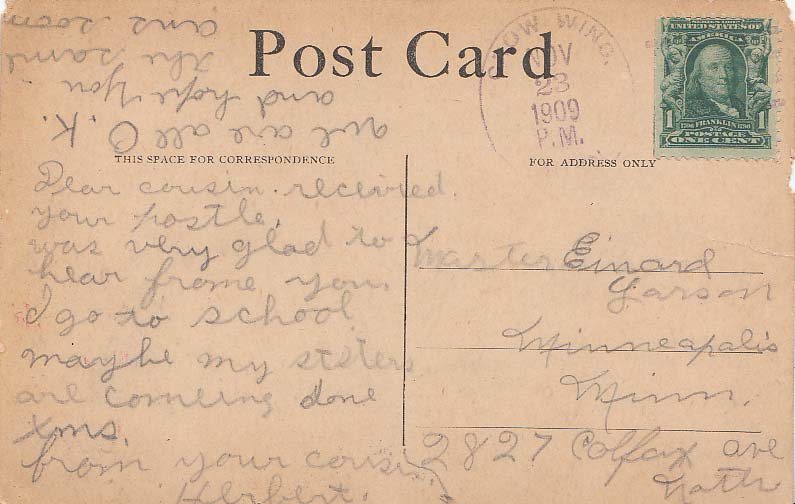 Post Card
CROW WING.
NOV
23
1909
P.M.
SERIES 1902
UNITED STATES OF
AMERICA
1 1706 FRANKLIN 1790 1
POSTAGE
ONE CENT
THIS SPACE FOR CORRESPONDENCE
FOR ADDRESS ONLY
Dear cousin. received
your postle.
was very glad to
hear frome you.
I go to school
maybe my sisters
are comeing done
xms.
from your cousin
Herbert.
are all O.K.
and hope you
the same
ans soon
Master Einard
Larson
Minneapolis
Minn.
2827 Colfax ave
North